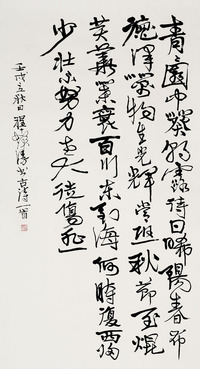 青〻園中葵朝露待日晞陽春布
德澤萬物生光輝常恐秋節至焜
黃華葉衰百川東到海何時復西歸
少壯不努力老大徒傷悲
壬戌立秋日 書古詩一首